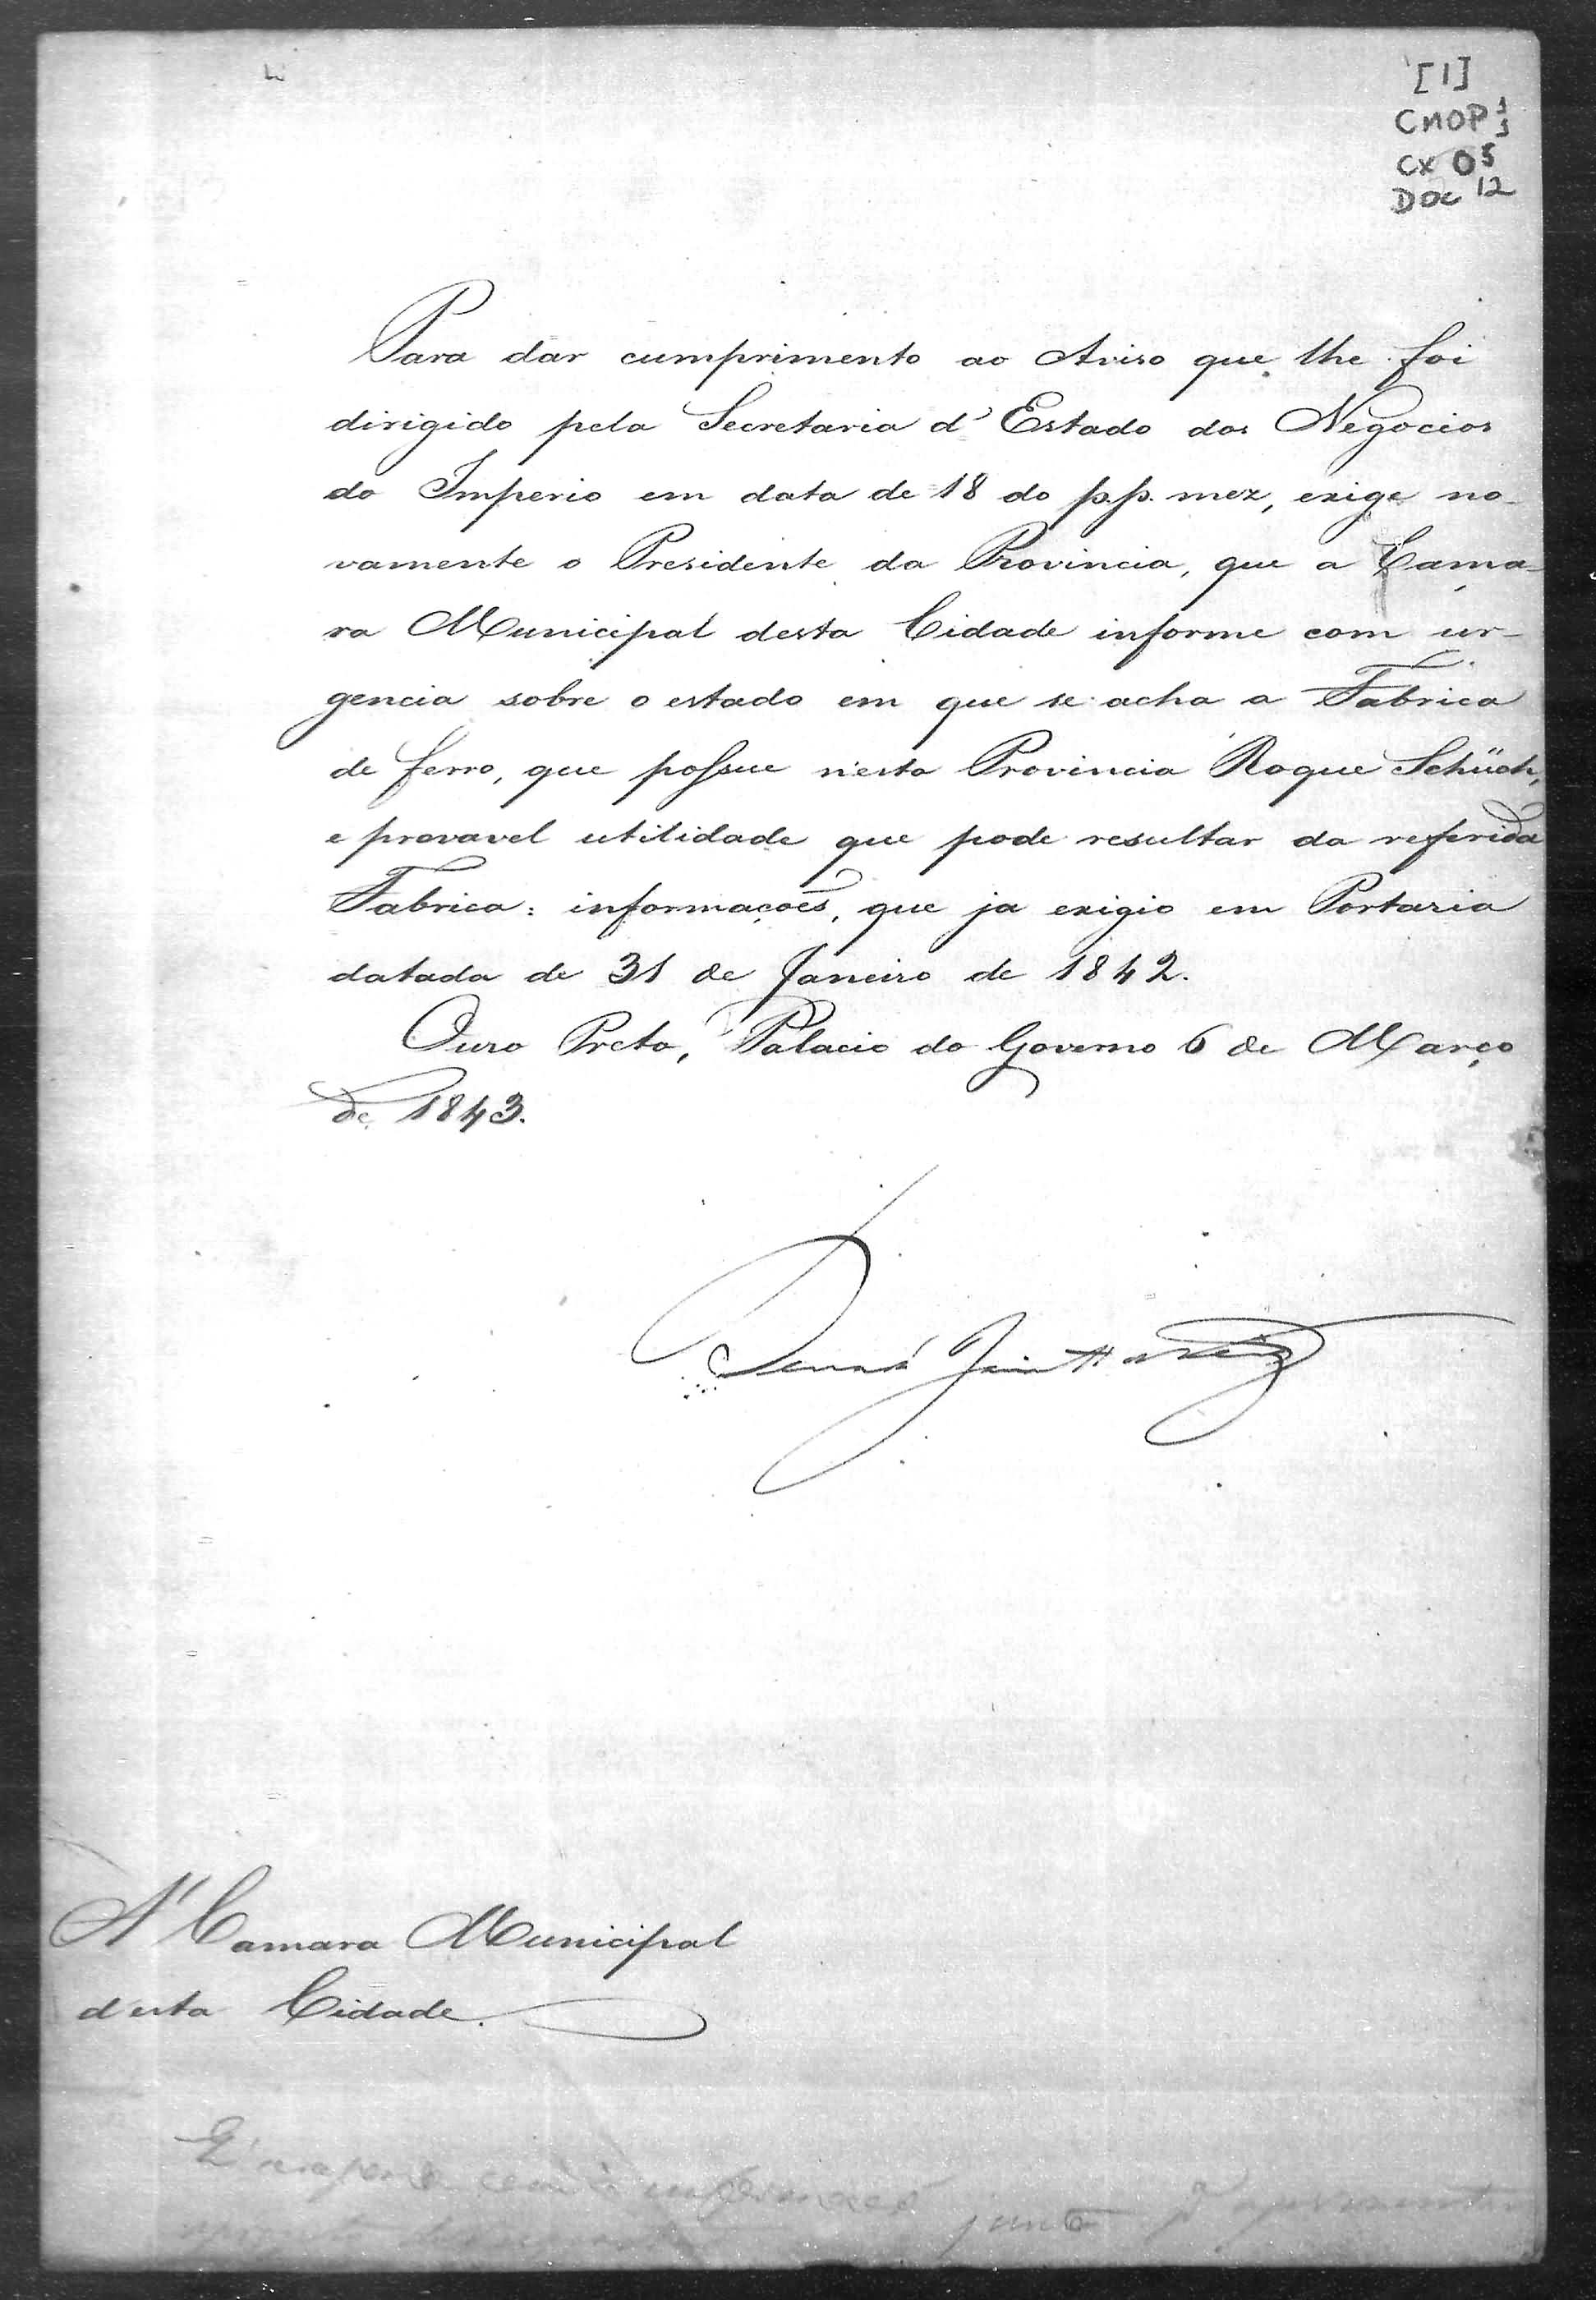 [1]
CMOP 1/3
CX 05
DOC 12
Para dar cumprimento ao Aviso que lhe foi
dirigido pela Secretaria d'Estado dos Negocios
do Imperio em data de 18 do p.p. mez, exige no-
vamente o Presidente da Provincia, que a Cama-
ra Municipal desta Cidade informe com ur-
gencia sobre o estado em que se acha a Fabrica
de ferro, que possue n'esta Provincia Roque Schüch,
e provavel utilidade que pode resultar da referida
Fabrica: informaçoẽs, que ja exigio em Portaria
datada de 31 de Janeiro de 1842.
Ouro Preto, Palacio do Governo 6 de Março
de 1843.
A' Camara Municipal
d'esta Cidade.
junto